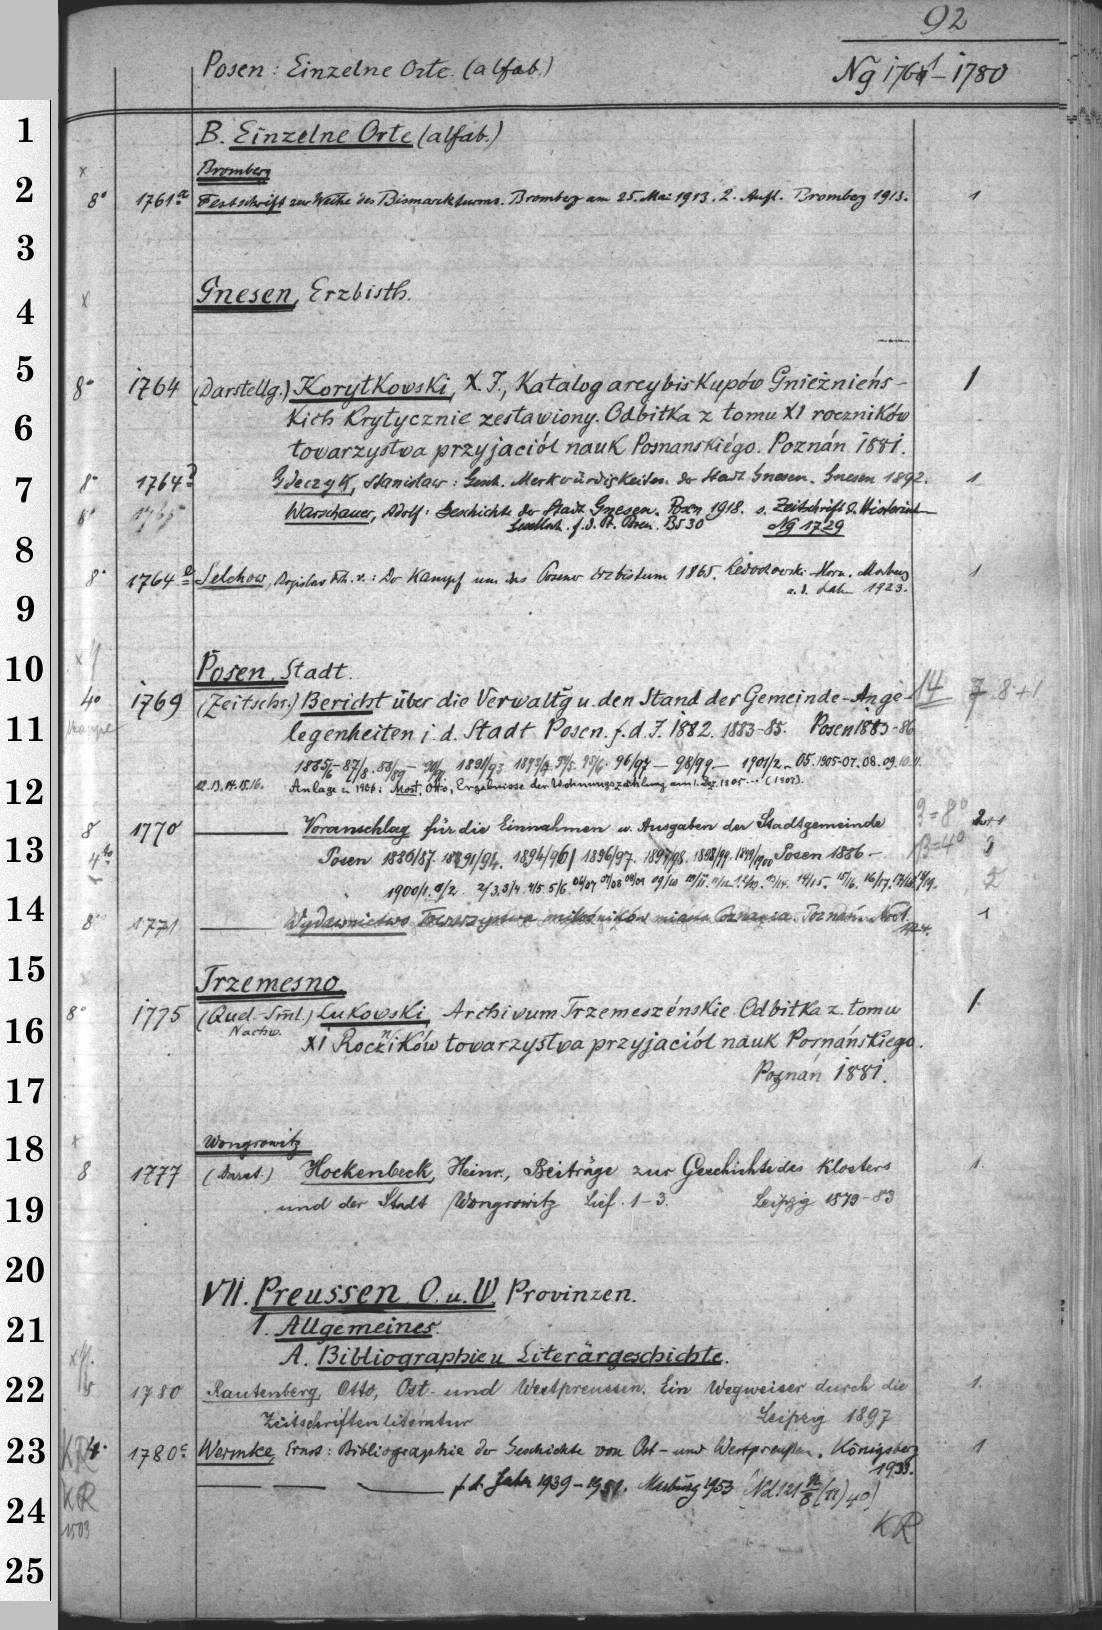 92
Posen: Einzelne Orte. (alfab.) Ng 1761-1780
1
B. Einzelne Orte (alfab.)
x
Bromberg
2
8° 1761a Festschrift zur Weihe des Bismarckturms. Bromberg am 25. Mai 1913. 2. Aufl. Bromberg 1913. 1
3
x Gnesen, Erzbisth.
4
5
8° 1764 (Darstellg.) Korytkowski, X. J., Katalog arcybiskupów Gnieźnieńs- 1
6
kich krytycznie zestawiony. Odbitka z tomu XI roczników
towarzystwa przyjaciół nauk Posnanskiégo. Poznán 1881.
7
8° 1764 Gdeczyk, Stanislaw: Gesch. Merkwürdigkeiten der Stadt Gnesen. Gnesen 1892. 1
8° 1765 Warschauer, Adolf: Geschichte der Stadt Gnesen. Posen 1918. s. Zeitschrift d. Historisch
Gesellsch. f. d. Pr. Posen. Bd 30 Ng 1729
8
8° 1764 Selchow, Bogislav Frh. v.: Der Kampf um das Posener Erzbistum 1865. Ledochowski Marburg 1
a. d. Lahn 1923.
9
10
x Posen, Stadt.
4° 1769 (Zeitschr.) Bericht über die Verwaltg u. den Stand der Gemeinde-Ange- 14 7 8+1
11
legenheiten i. d. Stadt Posen. f. d. J. 1882. 1883-85. Posen 1883-86
1885/6-87/8. 88/89 - 1891/93 96/97 - 98/99 - 1901/2 - 05. 1905-07. 08. 09. 10. 11.
12
12. 13. 14. 15. 16. Anlage z. 1906: Most, Otto, Ergebnisse der Wohnungszählung am 1. Dez. 1905... (1907).
8 1770 Voranschlag für die Einnahmen u. Ausgaben der Stadtgemeinde 3=8° 2+1
13
4to Posen 1886/87. 1891/94. 1894/96 1896/97. 1897/98. 1898/99. 1899/1900 Posen 1886- 13=4° 3
1900/1. 2/3. 3/4. 4/5. 5/6. 06/07 07/08 08/09 09/10 14/15. 15/16. 16/17. 2
14
8° 1771 Wydawnictwo Towarzystwa miłośników miasta Poznania. Poznań No 1. 1
1924.
15
Trzemesno.
8° 1775 (Quel.-Sml.) Lukowski, Archivum Trzemeszénskie. Odbitka z. tomu 1
Nachw.
16
XI Roczników towarzystwa przyjaciól nauk Posnánskiego.
Poznań 1881.
17
18
x Wongrowitz
8 1777 (Darst.) Hockenbeck, Heinr., Beiträge zur Geschichte des Klosters 1
19
und der Stadt Wongrowitz Lief. 1-3. Leipzig 1879-83
20
VII. Preussen O. u. W. Provinzen.
21
1. Allgemeines.
A. Bibliographie u. Literärgeschichte.
22
1780 Rautenberg, Otto, Ost- und Westpreussen. Ein Wegweiser durch die 1.
Zeitschriftenliteratur Leipzig 1897
23
KR 4° 1780c Wermke, Ernst: Bibliographie der Geschichte von Ost- und Westpreußen. Königsberg 1
1933.
KR f. d. Jahre 1939-1951. Marburg 1953
24
1503 KR
25